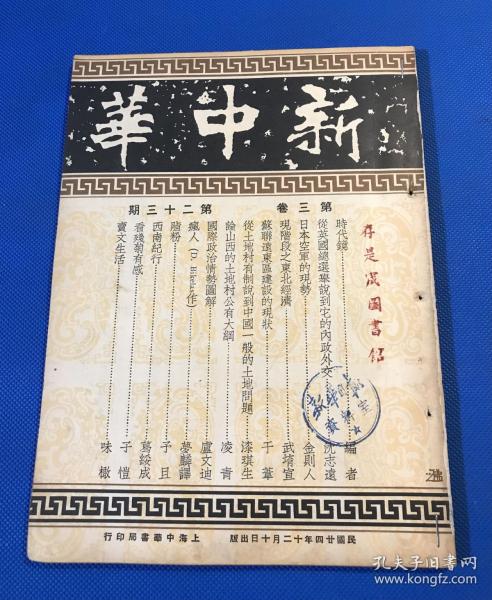 新中華
第三卷 第二十三期
時代鏡 編者
從英國總選舉說到它的內政外交 沈志遠
日本空軍的現勢 金則人
現階段之東北經濟 武堉宣
蘇聯遠東區建設的現狀 于葦
從土地村有制說到中國一般的土地問題 漆琪生
論山西的土地村公有大綱 凌青
國際政治情勢圖解 盧文迪
瘋人(D. 作) 夢麟譯
脂粉 予且
西南紀行 葛綏成
看殘菊有感 子愷
賣文生活 味橄
民國廿四年十二月十日出版
上海中華書局印行
孔夫子旧书网
www.kongfz.com